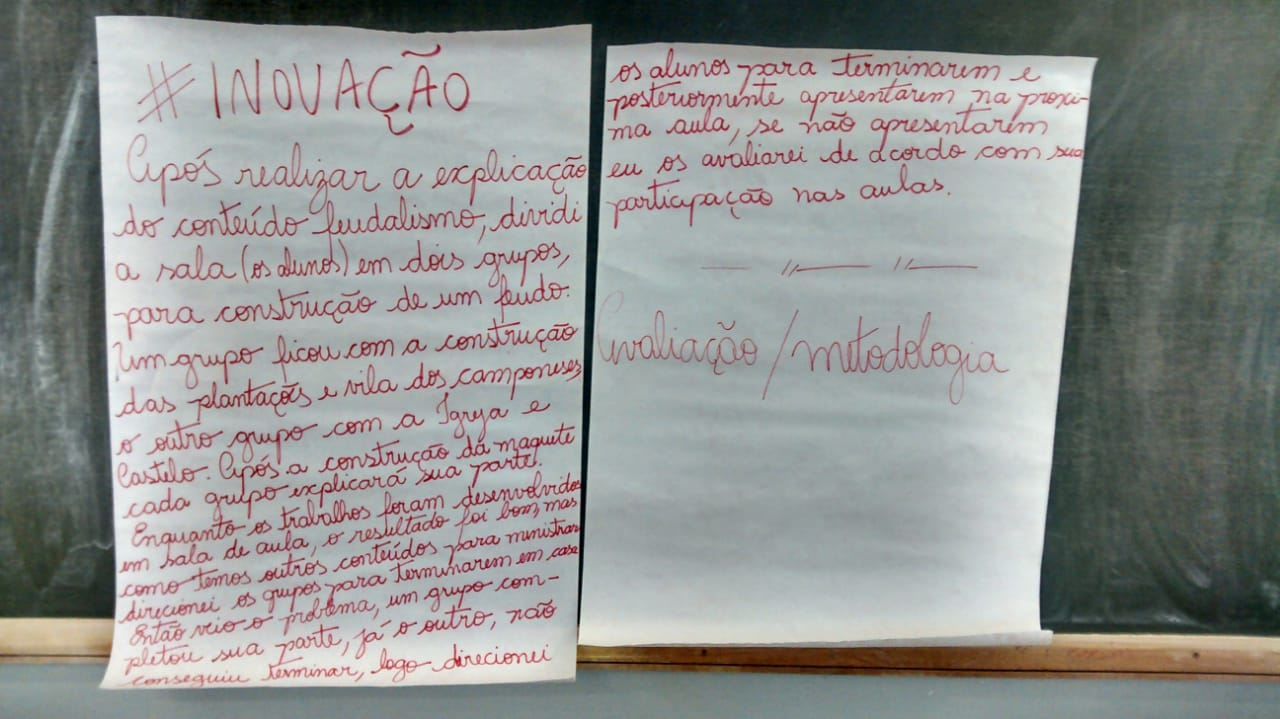 #INOVAÇÃO
Após realizar a explicação
do conteúdo feudalismo, dividi
a sala (os alunos) em dois grupos,
para construção de um feudo.
Um grupo ficou com a construção
das plantações e vila dos camponeses,
o outro grupo com a Igreja e
Castelo. Após a construção da maquete
cada grupo explicará sua parte.
Enquanto os trabalhos foram desenvolvidos
em sala de aula, o resultado foi bom, mas
como temos outros conteúdos para ministrar
direcionei os grupos para terminarem em casa
Então veio o problema, um grupo com-
pletou sua parte, já o outro, não
conseguiu terminar, logo direcionei
os alunos para terminarem e
posteriormente apresentarem na proxi-
ma aula, se não apresentarem
eu os avaliarei de acordo com sua
participação nas aulas.
— // — // —
Avaliação / metodologia